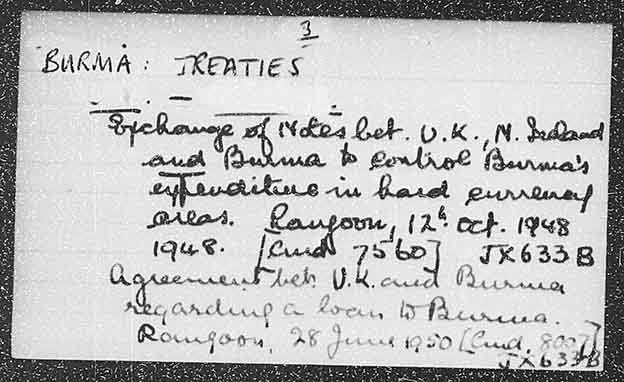 3
BURMA: TREATIES
Exchange of Notes bet. U.K., N. Ireland
and Burma to control Burma's
expenditure in hard currency
areas. Rangoon, 12th Oct. 1948
1948. [Cmd 7560] JX633B
Agreement bet. U.K. and Burma
regarding a loan to Burma.
Rangoon, 28 June 1950 [Cmd. 8007]
JX633B